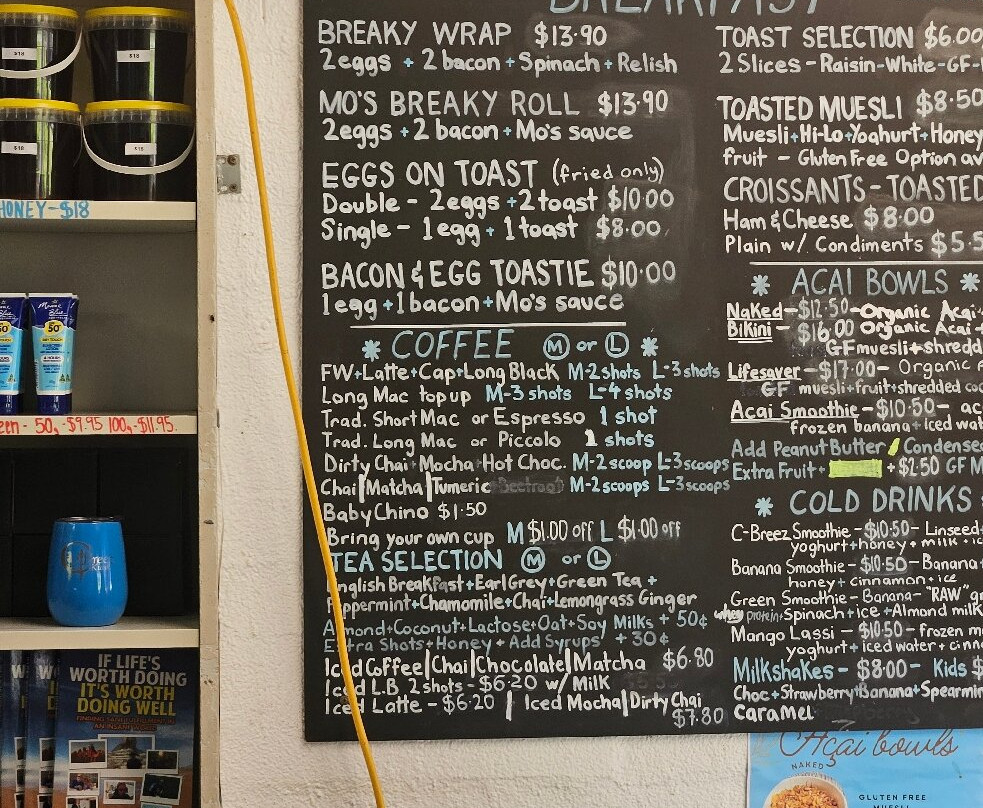 $18
$18
$18
$18
HONEY-$18
50+
een - 50g-$9.95 100g-$11.95.
IF LIFE'S
WORTH DOING
IT'S WORTH
DOING WELL
BREAKFAST
BREAKY WRAP $13.90
2eggs + 2 bacon + Spinach + Relish
MO'S BREAKY ROLL $13.90
2eggs + 2 bacon + Mo's sauce
EGGS ON TOAST (fried only)
Double - 2eggs + 2 toast $10.00
Single - 1egg + 1 toast $8.00
BACON & EGG TOASTIE $10.00
1egg + 1 bacon + Mo's sauce
* COFFEE M or L *
FW+Latte+Cap+Long Black M-2shots L-3shots
Long Mac top up M-3 shots L-4 shots
Trad. Short Mac or Espresso 1 shot
Trad. Long Mac or Piccolo 1 shots
Dirty Chai+Mocha+Hot Choc. M-2 scoop L-3scoops
Chai|Matcha|Tumeric Beetroot M-2scoops L-3scoops
BabyChino $1.50
Bring your own cup M $1.00 off L $1.00 off
TEA SELECTION M or L
English Breakfast+Earl Grey+Green Tea +
Peppermint+Chamomile+Chai+Lemongrass Ginger
Almond+Coconut+Lactose+Oat+Soy Milks + 50¢
Extra Shots+Honey + Add Syrups + 30¢
Iced Coffee|Chai|Chocolate|Matcha $6.80
Iced L.B. 2 shots - $6.20 w/ Milk
Iced Latte - $6.20 | Iced Mocha|Dirty Chai
$7.80
TOAST SELECTION $6.00
2 Slices - Raisin-White-GF-
TOASTED MUESLI $8.50
Muesli+Hi-Lo+Yoghurt+Honey
fruit - Gluten Free Option av
CROISSANTS - TOASTED
Ham & Cheese $8.00
Plain w/ Condiments $5.5
* ACAI BOWLS *
Naked-$12.50-Organic Acai
Bikini - $16.00 Organic Acai +
GF muesli+shredd
Lifesaver -$17.00- Organic A
GF muesli+fruit+shredded co
Acai Smoothie-$10.50- ac
frozen banana+iced wat
Add Peanut Butter / Condense
Extra Fruit + +$2.50 GF M
* COLD DRINKS
C-Breez Smoothie-$10.50- Linseed+
yoghurt+honey+milk+ic
Banana Smoothie-$10.50-Banana+
honey+cinnamon+ice
Green Smoothie-Banana-"RAW" gr
whey protein+Spinach+ice+Almond milk
Mango Lassi - $10.50-frozen m
yoghurt+iced water+cinn
Milkshakes-$8.00- Kids $
Choc+Strawberry+Banana+Spearmin
Caramel
Açai bowls
NAKED
GLUTEN FREE
MUESLI